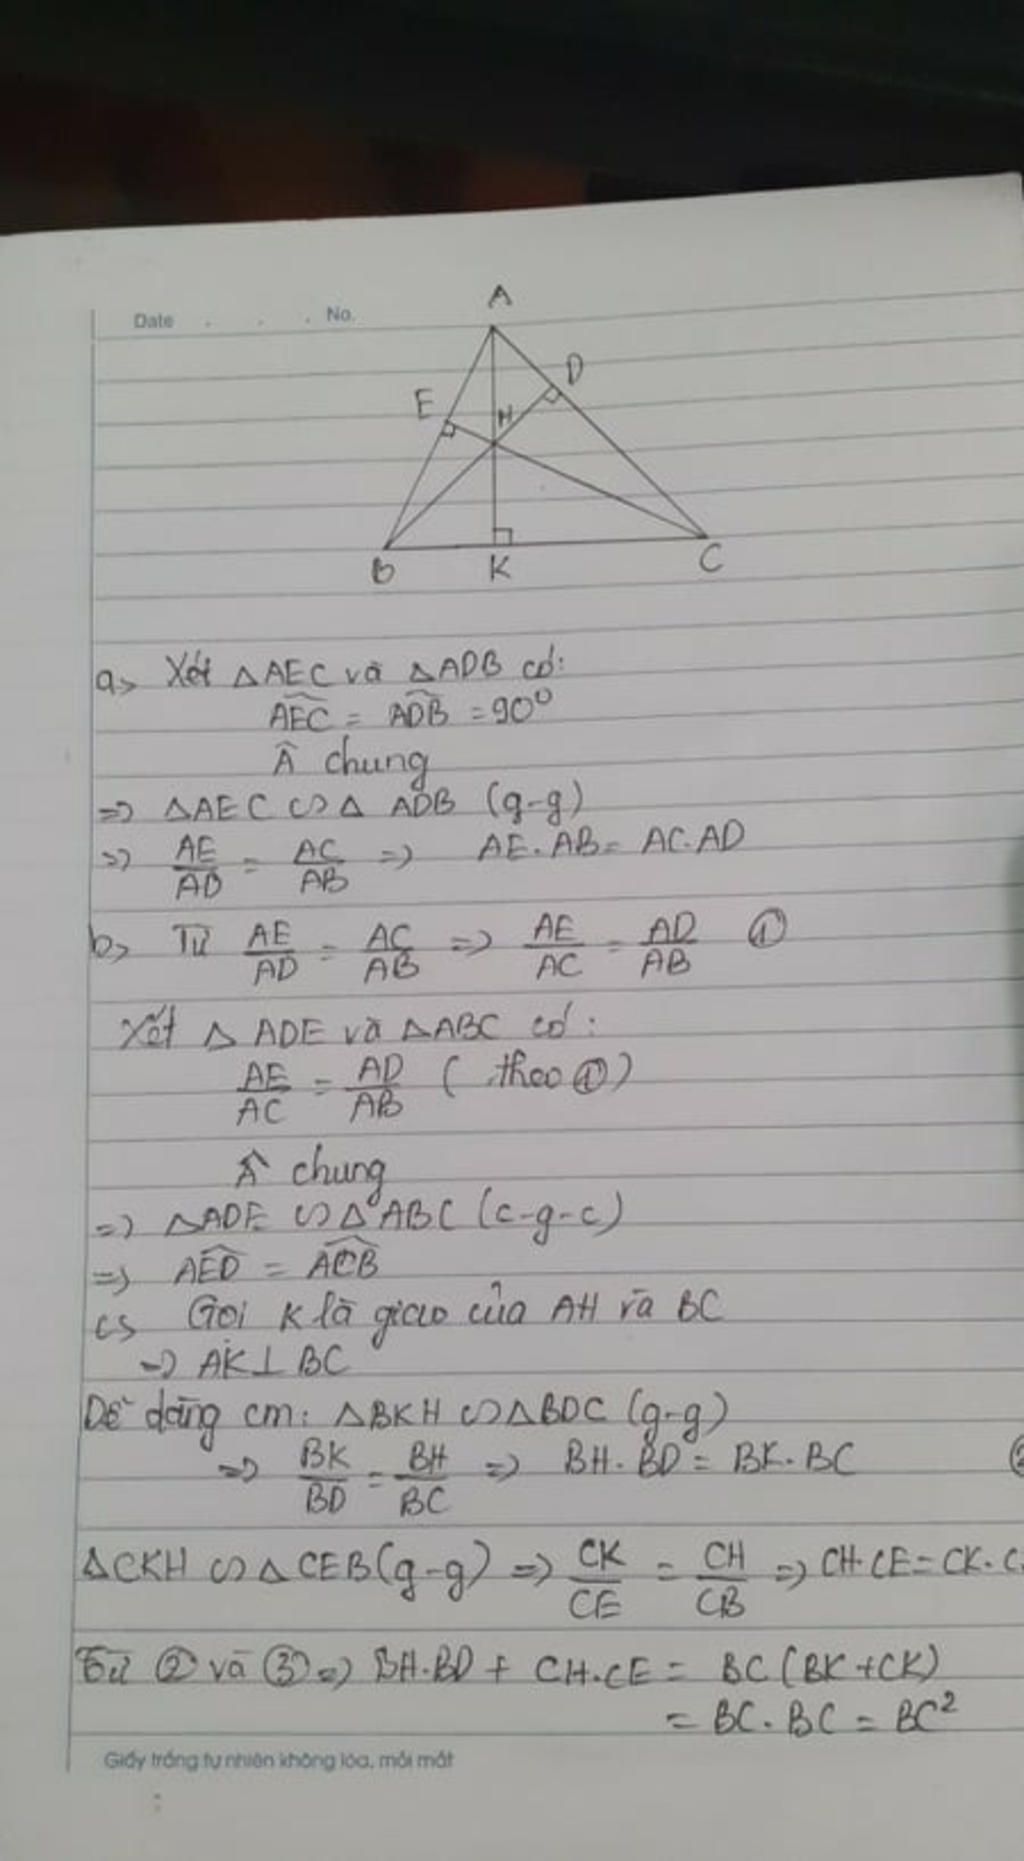 Date . . . No.
A
D
E
H
B K C
a> Xét △AEC và △ADB có:
AEC = ADB = 90⁰
Â chung
=> △AEC ∽ △ ADB (g-g)
=> AE/AD = AC/AB => AE.AB = AC.AD
b> Từ AE/AD = AC/AB => AE/AC = AD/AB ①
Xét △ ADE và △ABC có:
AE/AC = AD/AB ( theo ①)
Â chung
=> △ADE ∽ △ABC (c-g-c)
=> AED = ACB
c> Gọi K là giao của AH và BC
=> AK⊥BC
Dễ dàng cm: △BKH ∽ △BDC (g-g)
=> BK/BD = BH/BC => BH.BD = BK.BC ②
△CKH ∽ △CEB(g-g) => CK/CE = CH/CB => CH.CE = CK.C
Từ ② và ③ => BH.BD + CH.CE = BC(BK+CK)
= BC.BC = BC²
Giấy trắng tự nhiên không lóa, mỏi mắt